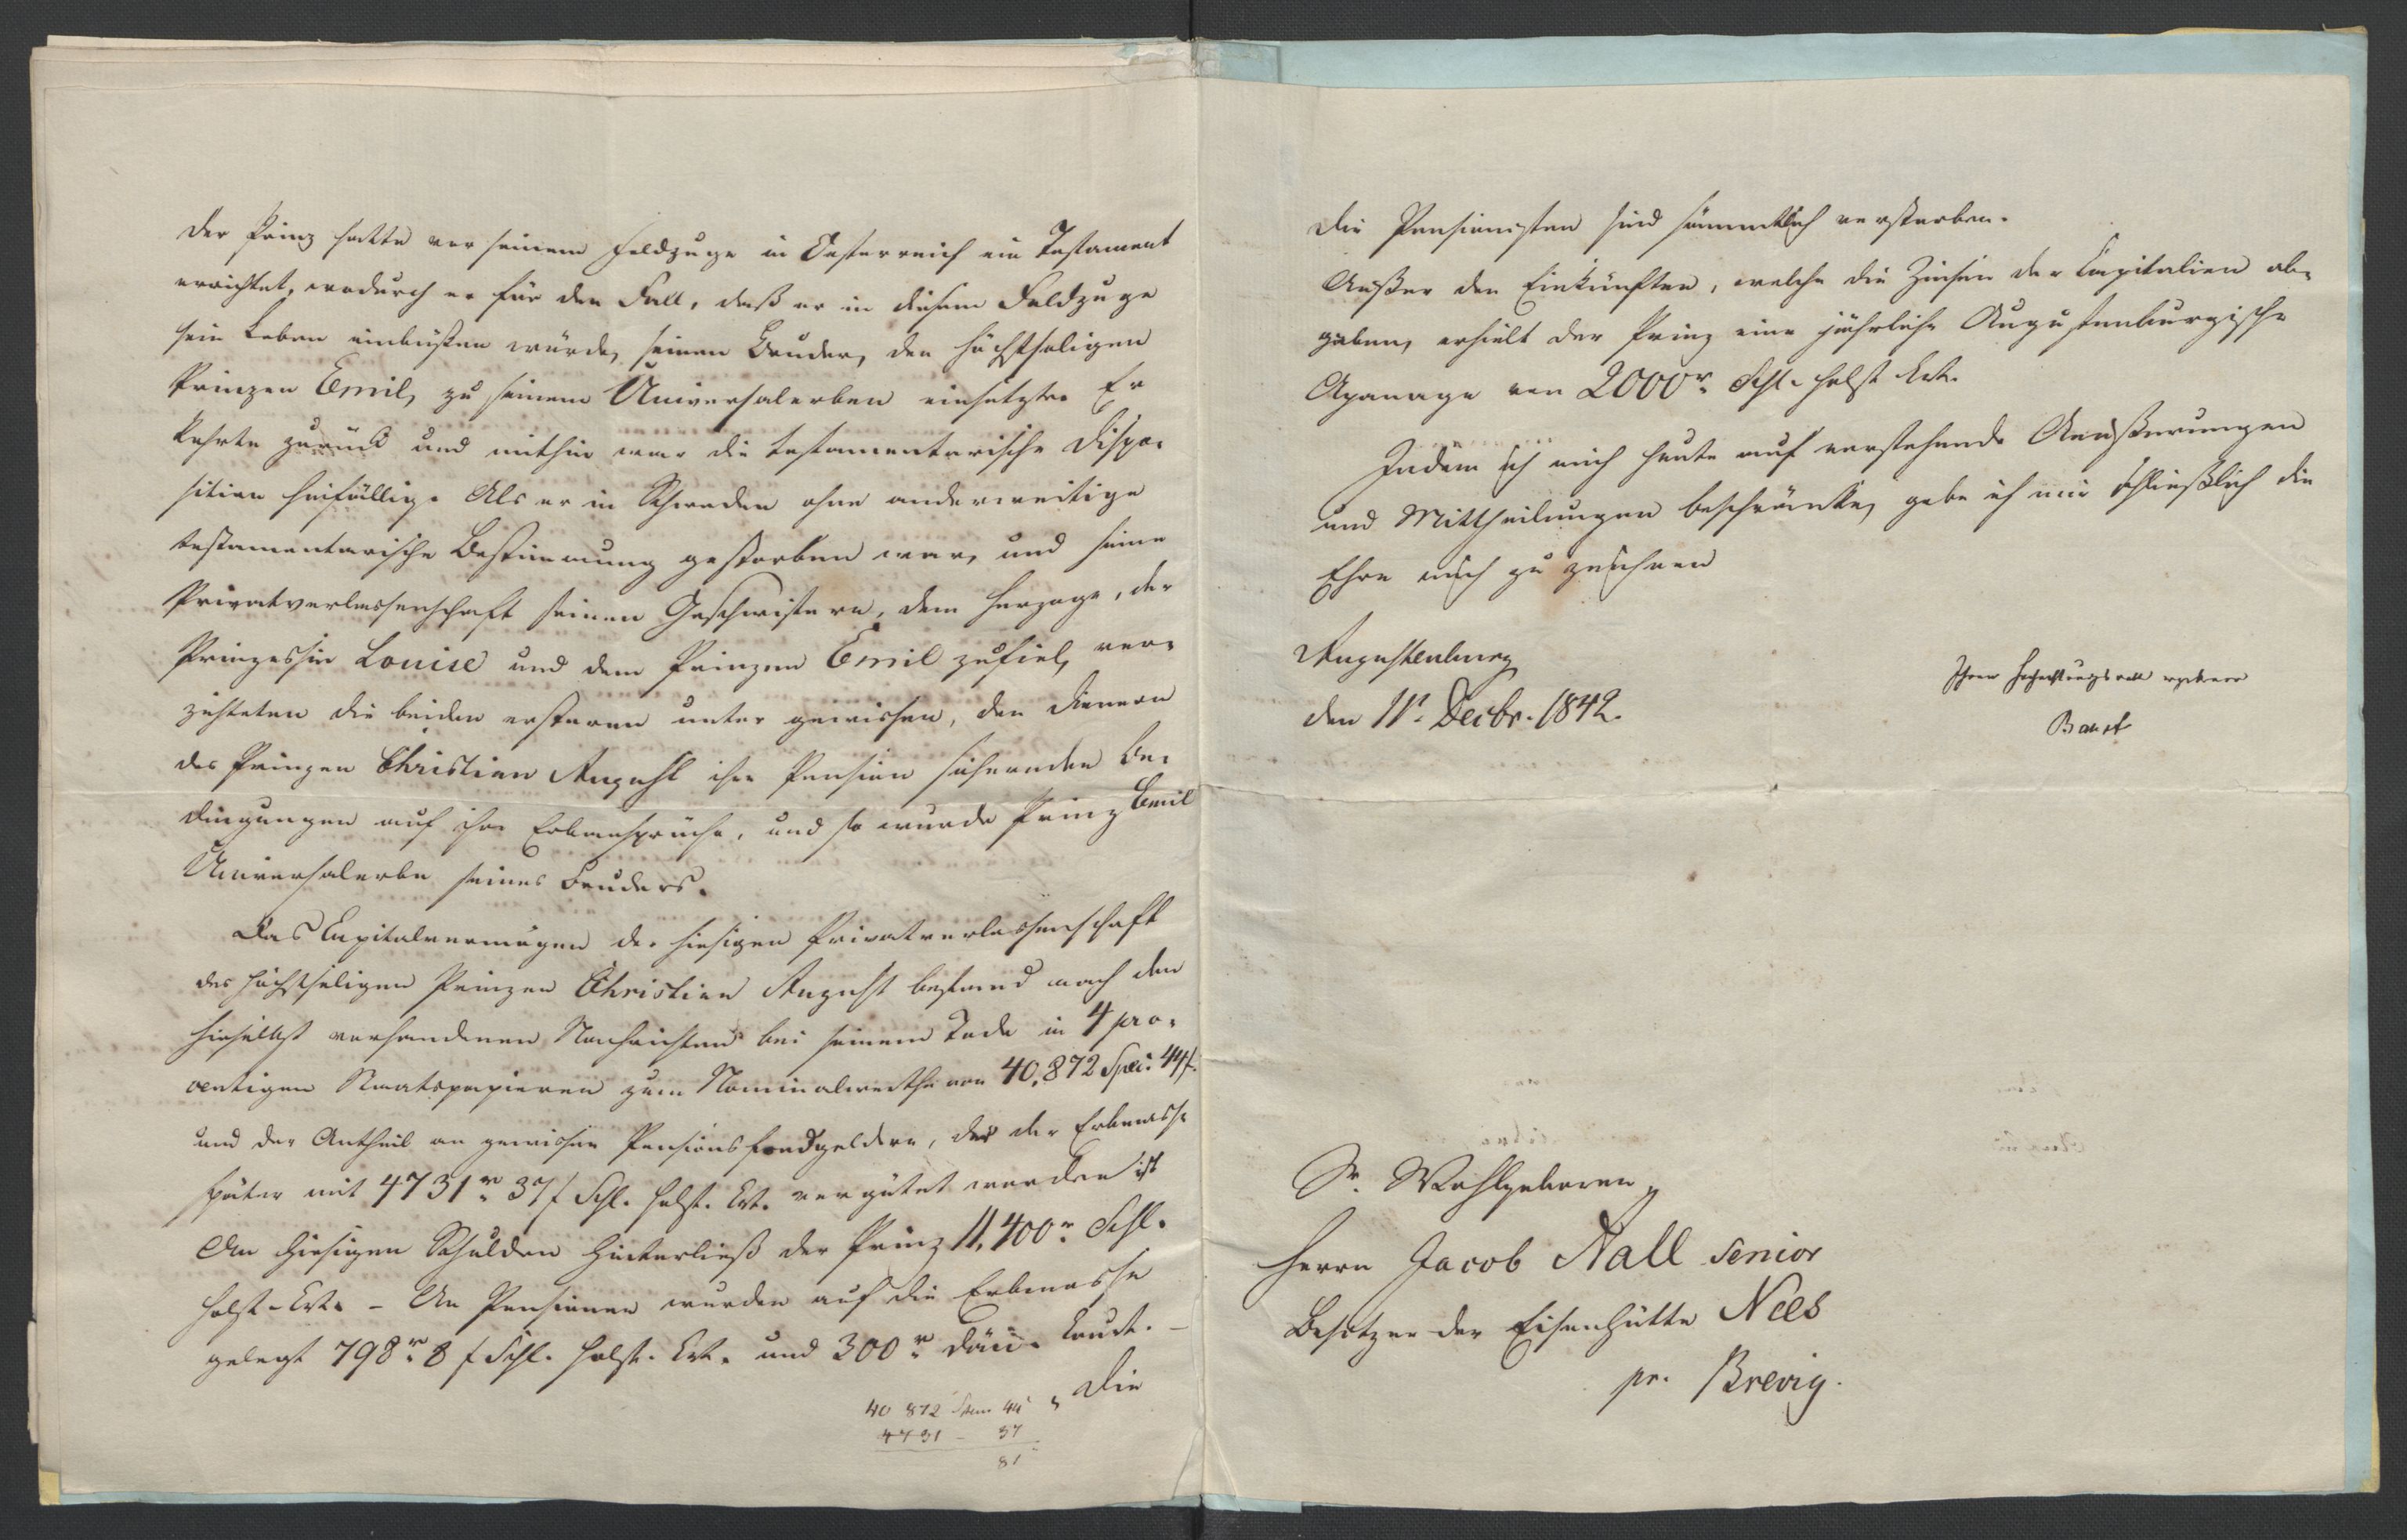 Der Prinz hatte vor seinem Feldzuge in Oesterreich ein Testament
errichtet, wodurch er für den Fall, daß er in diesem Feldzuge
sein Leben einbüßen würde, seinen Bruder, den höchstseligen
Prinzen Emil, zu seinem Universalerben einsetzte. Er
kehrte zurück und mithin war die testamentarische Dispo-
sition hinfällig. Als er in Schweden ohne anderweitige
testamentarische Bestimmung gestorben war, und seine
Privatverlassenschaft seinen Geschwistern, dem Herzoge, der
Prinzessin Louise und dem Prinzen Emil zufiel, ver-
zichteten die beiden ersteren unter gewissen, den Dienern
des Prinzen Christian August ihre Pension sichernden Be-
dingungen auf ihre Erbansprüche, und so wurde Prinz Emil
Universalerbe seines Bruders.
Das Capitalvermögen der hiesigen Privatverlassenschaft
des höchstseligen Prinzen Christian August bestand nach den
hieselbst vorhandenen Nachrichten bei seinem Tode in 4 pro-
centigen Staatspapieren zum Nominalwerthe von 40,872 Spec. 44 f.
und der Antheil an gewissen Pensionsfondgeldern, der der Erbmasse
später mit 4731 r. 37 f Schl. Holst. Crt. vergütet worden ist
An hiesigen Schulden hinterließ der Prinz 11,400 r. Schl.
Holst. Crt. - An Pensionen wurden auf die Erbmasse
gelegt 798 r. 8 f Schl. Holst. Crt. und 300 r. Dän. Court. -
Die
40 872 44
4731 - 37
81
Die Pensionisten sind sämmtlich verstorben.
Außer den Einkünften, welche die Zinsen der Capitalien ab-
gaben, erhielt der Prinz eine jährliche Augustenburgische
Apanage von 2000 r. Schl. Holst. Crt.
Indem ich mich heute auf vorstehende Aeußerungen
und Mittheilungen beschränke, gebe ich mir schließlich die
Ehre mich zu zeichnen
Augustenburg
den 11t. Decbr. 1842.
Ihren hochachtungsvoll ergebenen
Sr. Wohlgeboren,
Herrn Jacob Aall senior
Besitzer der Eisenhütte Nees
pr. Brevig.